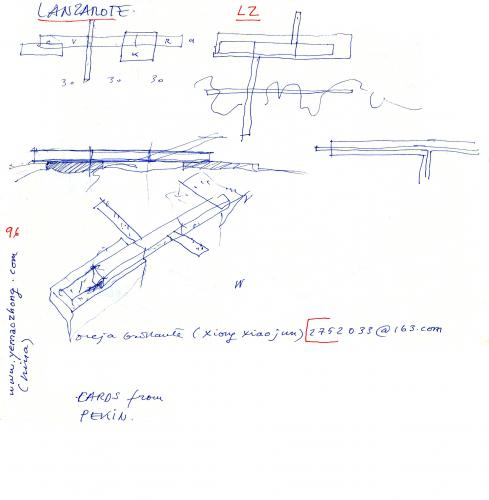 LANZAROTE.
LZ
V
R
a
K
30 30 30
96
www.yemaozhong.com
(China)
N
oreja brillante (xiong xiaojun) 2752033@163.com
CARDS from
PEKIN.